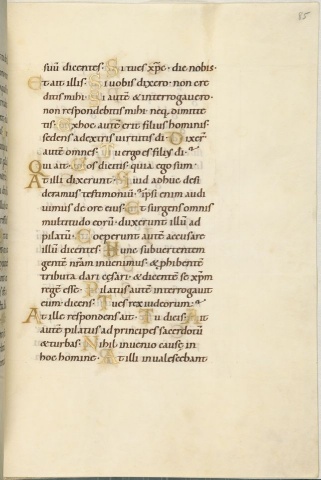 85
suū dicentes· Si tu es xp̄c· dic nobis·
Et ait illis· Si uobis dixero· non cre
ditis mihi· Si autē & interrogauero·
non respondebitis mihi· neq; dimitte
tis· Ex hoc autē erit filius hominis
sedens a dextris uirtutis dī· Dixer̄
autē omnes· Tu ergo es filius dī·
Qui ait· Vos dicitis· quia ego sum·
At illi dixerunt· Quid adhuc desi
deramus testimoniū· ipsi enim audi
uimus de ore eius· Et surgens omnis
multitudo eorū· duxerunt illum ad
pilatū· Coeperunt autē accusare
illū dicentes· Hunc subuertentem
gentē nr̄am inuenimus· & phibentē
tributa dari cęsari· & dicentē se xp̄m
regē esse· Pilatus autē interrogauit
eum dicens· Tu es rex iudeorum·
At ille respondens ait· Tu dicis· Ait
autē pilatus ad principes sacerdotū
& turbas· Nihil inuenio causę in
hoc homine· At illi inualescebant